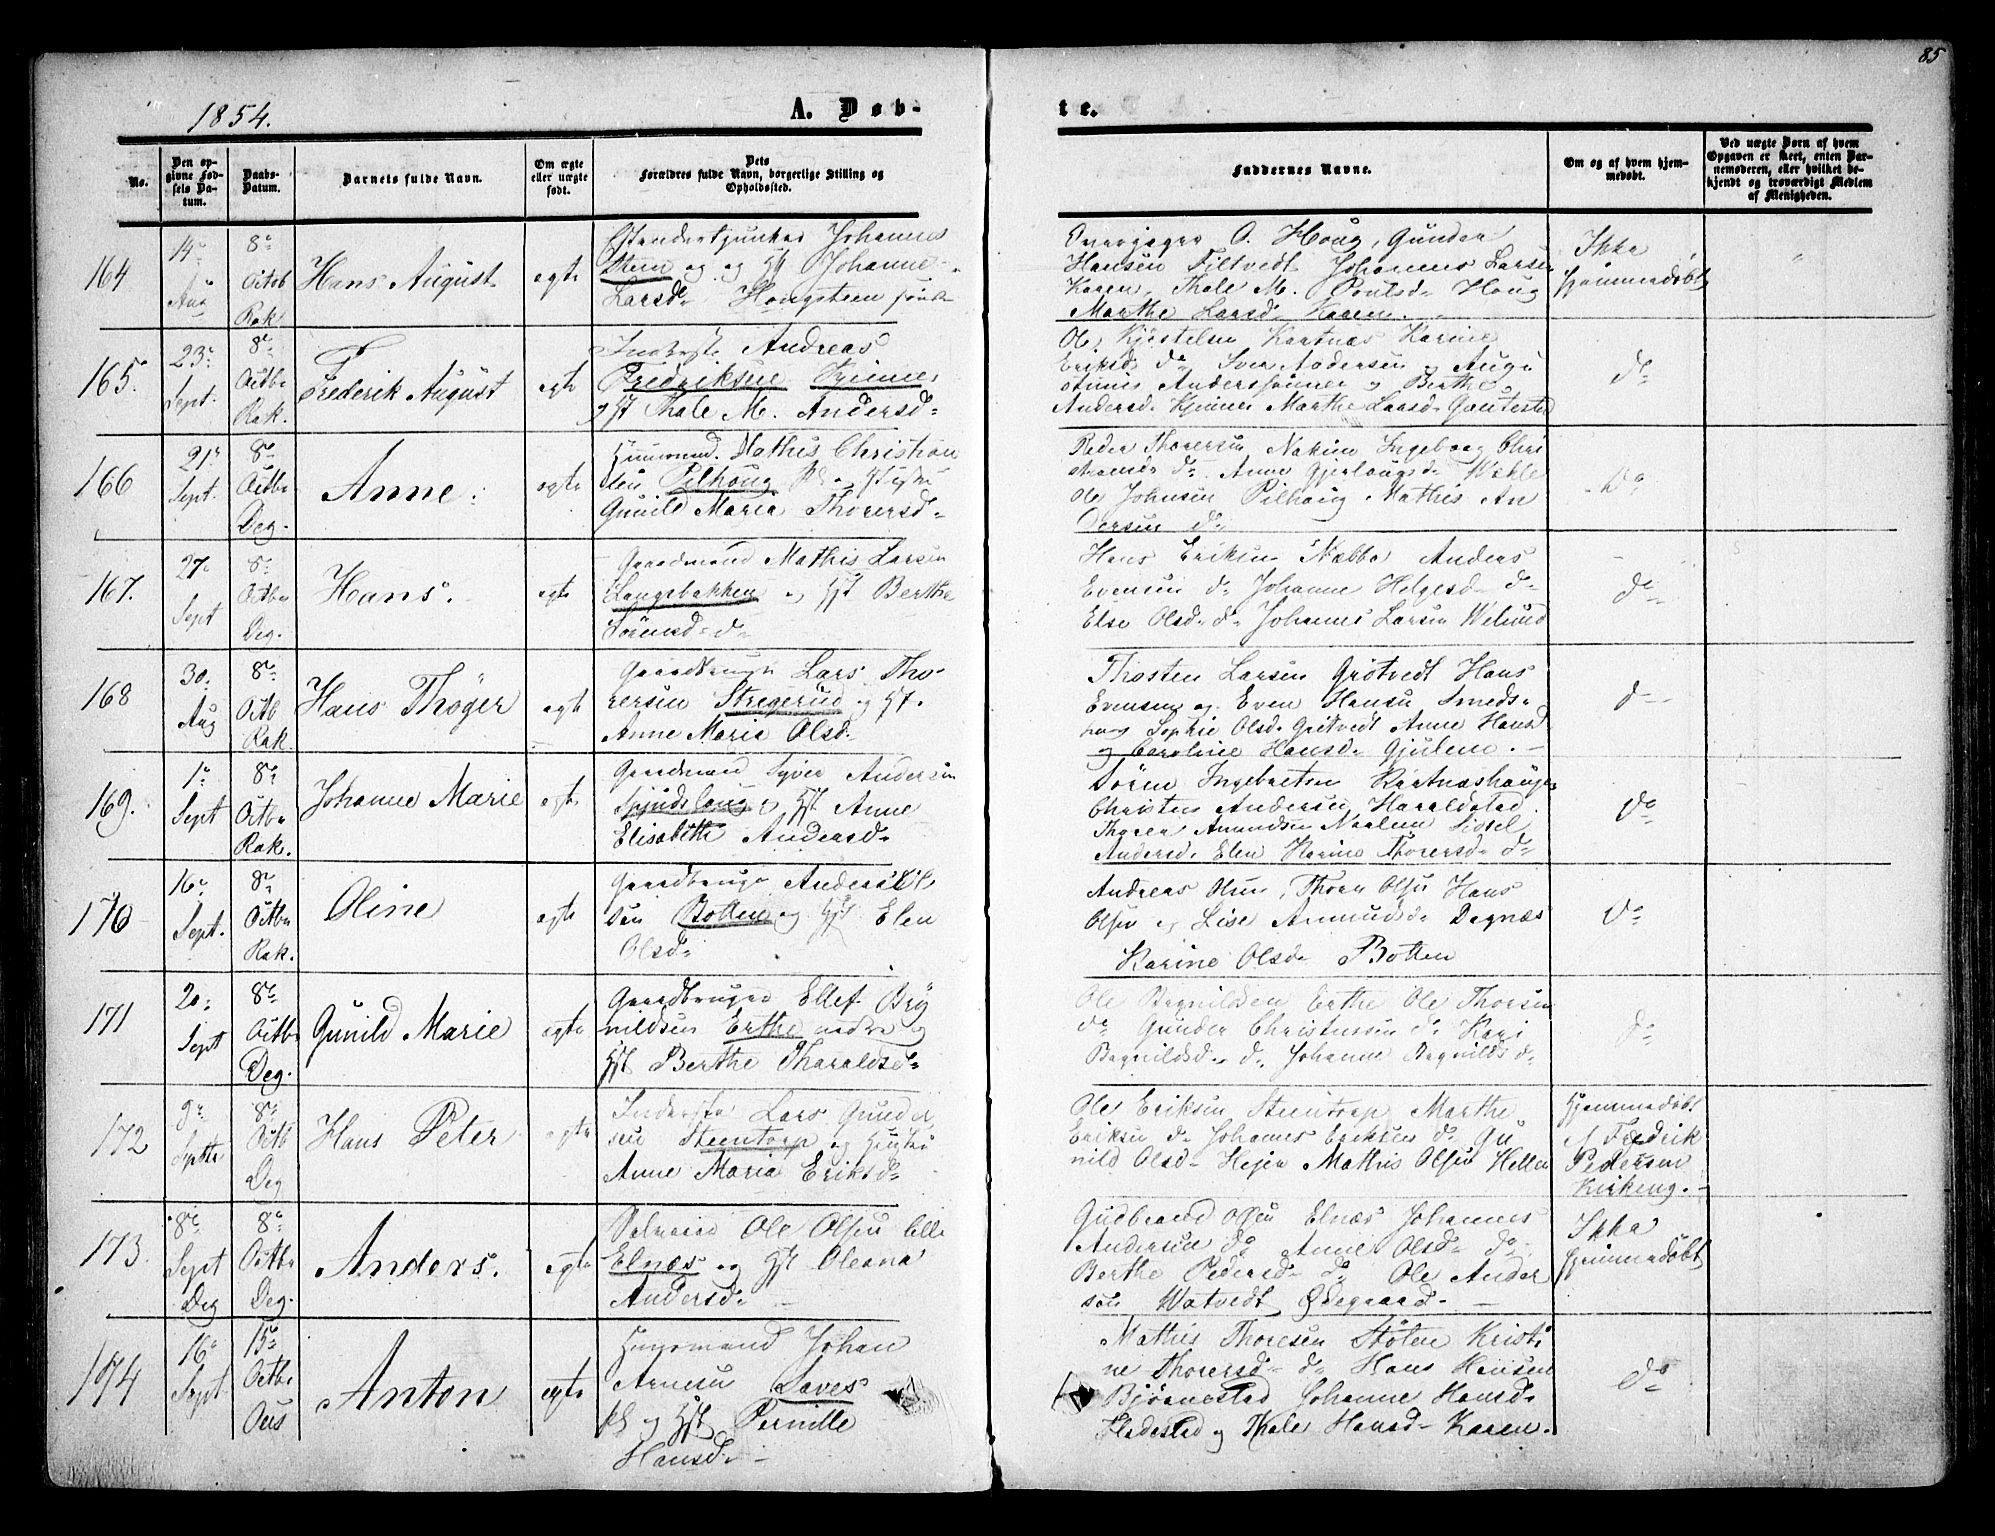 85
1854.
A. Døb-
te.
No.
Den op-
givne Fød-
sels Da-
tum.
Daabs-
Datum.
Barnets fulde Navn.
Om ægte
eller uægte
født.
Dets
Forældres fulde Navn, borgerlige Stilling og
Opholdssted.
Faddernes Navne.
Om og af hvem hjem-
medøbt.
Ved uægte Børn af hvem
Opgaven er skeet, enten Bar-
nemoderen, eller hvilket be-
kjendt og troværdigt Medlem
af Menigheden.
164
14
Aug
8
Octob
Rak.
Hans August
egte
Standertjunker Johannes
Steen og Johanne
Larsd.
O. Houg, Gunder
Hansen Filtvedt Johannes Larsen
Karen, Thale M. Poulsd. Houg
Marthe Larsd. Karen.
Ikke
hjemmedøbt
165.
23
Sept.
8
Octbr
Rak.
Frederik August
egte
Inderste Andreas
Fredriksen
Thale M. Andersd.
Ole Kjostelsen Kortnæs Karine
Eriksd. do Iver Andersen og Augu
Andersd. Marthe Larsd.
do
166
21
Sept.
8
Octbr
Deg.
Anne.
egte
Huusmand. Mathis Christian
sen Pilhoug
Gunild Maria Thorersd.
Peder Thorersen Nakim Ingeborg Chri
do Anne
Ole Johnsen Pilhoug Mathis An
dersen do
do
167.
27
Sept
8
Octbr
Deg.
Hans.
egte
Gaardmand Mathis Larsen
Langsbakken og Hst Berthe
Sörensd. do
Hans Eriksen Nabbe Anders
Evensen do Johanne Helgesd. do
Else Olsd. do Johannes Larsen Welund
do
168
30
Aug
8
Octb
Rak.
Hans Thöger
egte
Gaardbruger Lars Tho
rersen Stregerud og Hst.
Anne Marie Olsd.
Thosten Larsen Grötvedt Hans
Evensen og Even Hansen Smeds-
houg Sophie Olsd. Gritvedt Anne Hansd
og Caroline Hansd. Gjulem.
do
169.
1
Sept
8
Octbr
Rak.
Johanne Marie
egte
Gaardmand Syver Andersen
og Hst Anne
Elisabeth Andersd.
Sören Ingebretsen
Christen Andersen Haraldstad
Thorer Amundsen Sissel
Andersd. Elen Karine Thorersd. do
do
170
16
Sept.
8
Octbr
Rak.
Oline
egte
Gaardbruger Anders
sen Botten og Hst Elen
Olsd.
Andreas Olsen, Thorer Olsen Hans
Olsen og Lise Amundsd. Degnæs
Karine Olsd. Botten
do
171
20
Sept
8
Octbr
Deg.
Gunild Marie
egte
Gaardbruger Ellef Bög
nildsen Erthe nedre og
Hst Berthe Tharaldsd.
Ole Bognildsen Erthe Ole Thorsen
do Gunder Christensen do Kari
Bognildsd. do Johanne Bognilds do
do
172
9
Septbr
8
Octb
Deg
Hans Peter
egte
Inderste Lars Gunder
sen Steentorp og Hustru
Anne Maria Eriksd.
Ole Eriksen Steentorp Marthe
Eriksen do Johannes Eriksen do Gu
nild Olsd. Hejer Mathis Olsen Hellen
Hjemmedøbt
af Fredrik
Pedersen
Kirkeng.
173.
8
Sept
Deg
8
Octbr
Deg.
Anders.
egte
Ole Olsen Lille
Elnæs og Hst Oleana
Andersd.
Gudbrand Olsen Elnæs Johannes
Andersen do Anne Olsd. do
Berthe Pedersd. do Ole Ander
sen Watvedt Ødegaard.
Ikke
hjemmedøbt
174
16
Sept
15
Octbr
Ous
Anton
egte
Huusmand Johan
Arnesen Loves
og Hst Pernille
Hansd.
Mathis Thoresen Stölen Kristi
ne Thorersd. do Hans Hansen
Bjørnestad Johanne Hansd.
Fladestad og Thale Hansd. Karen.
do